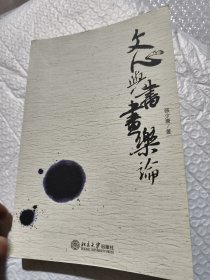 文心與書畫樂論
北京大學出版社